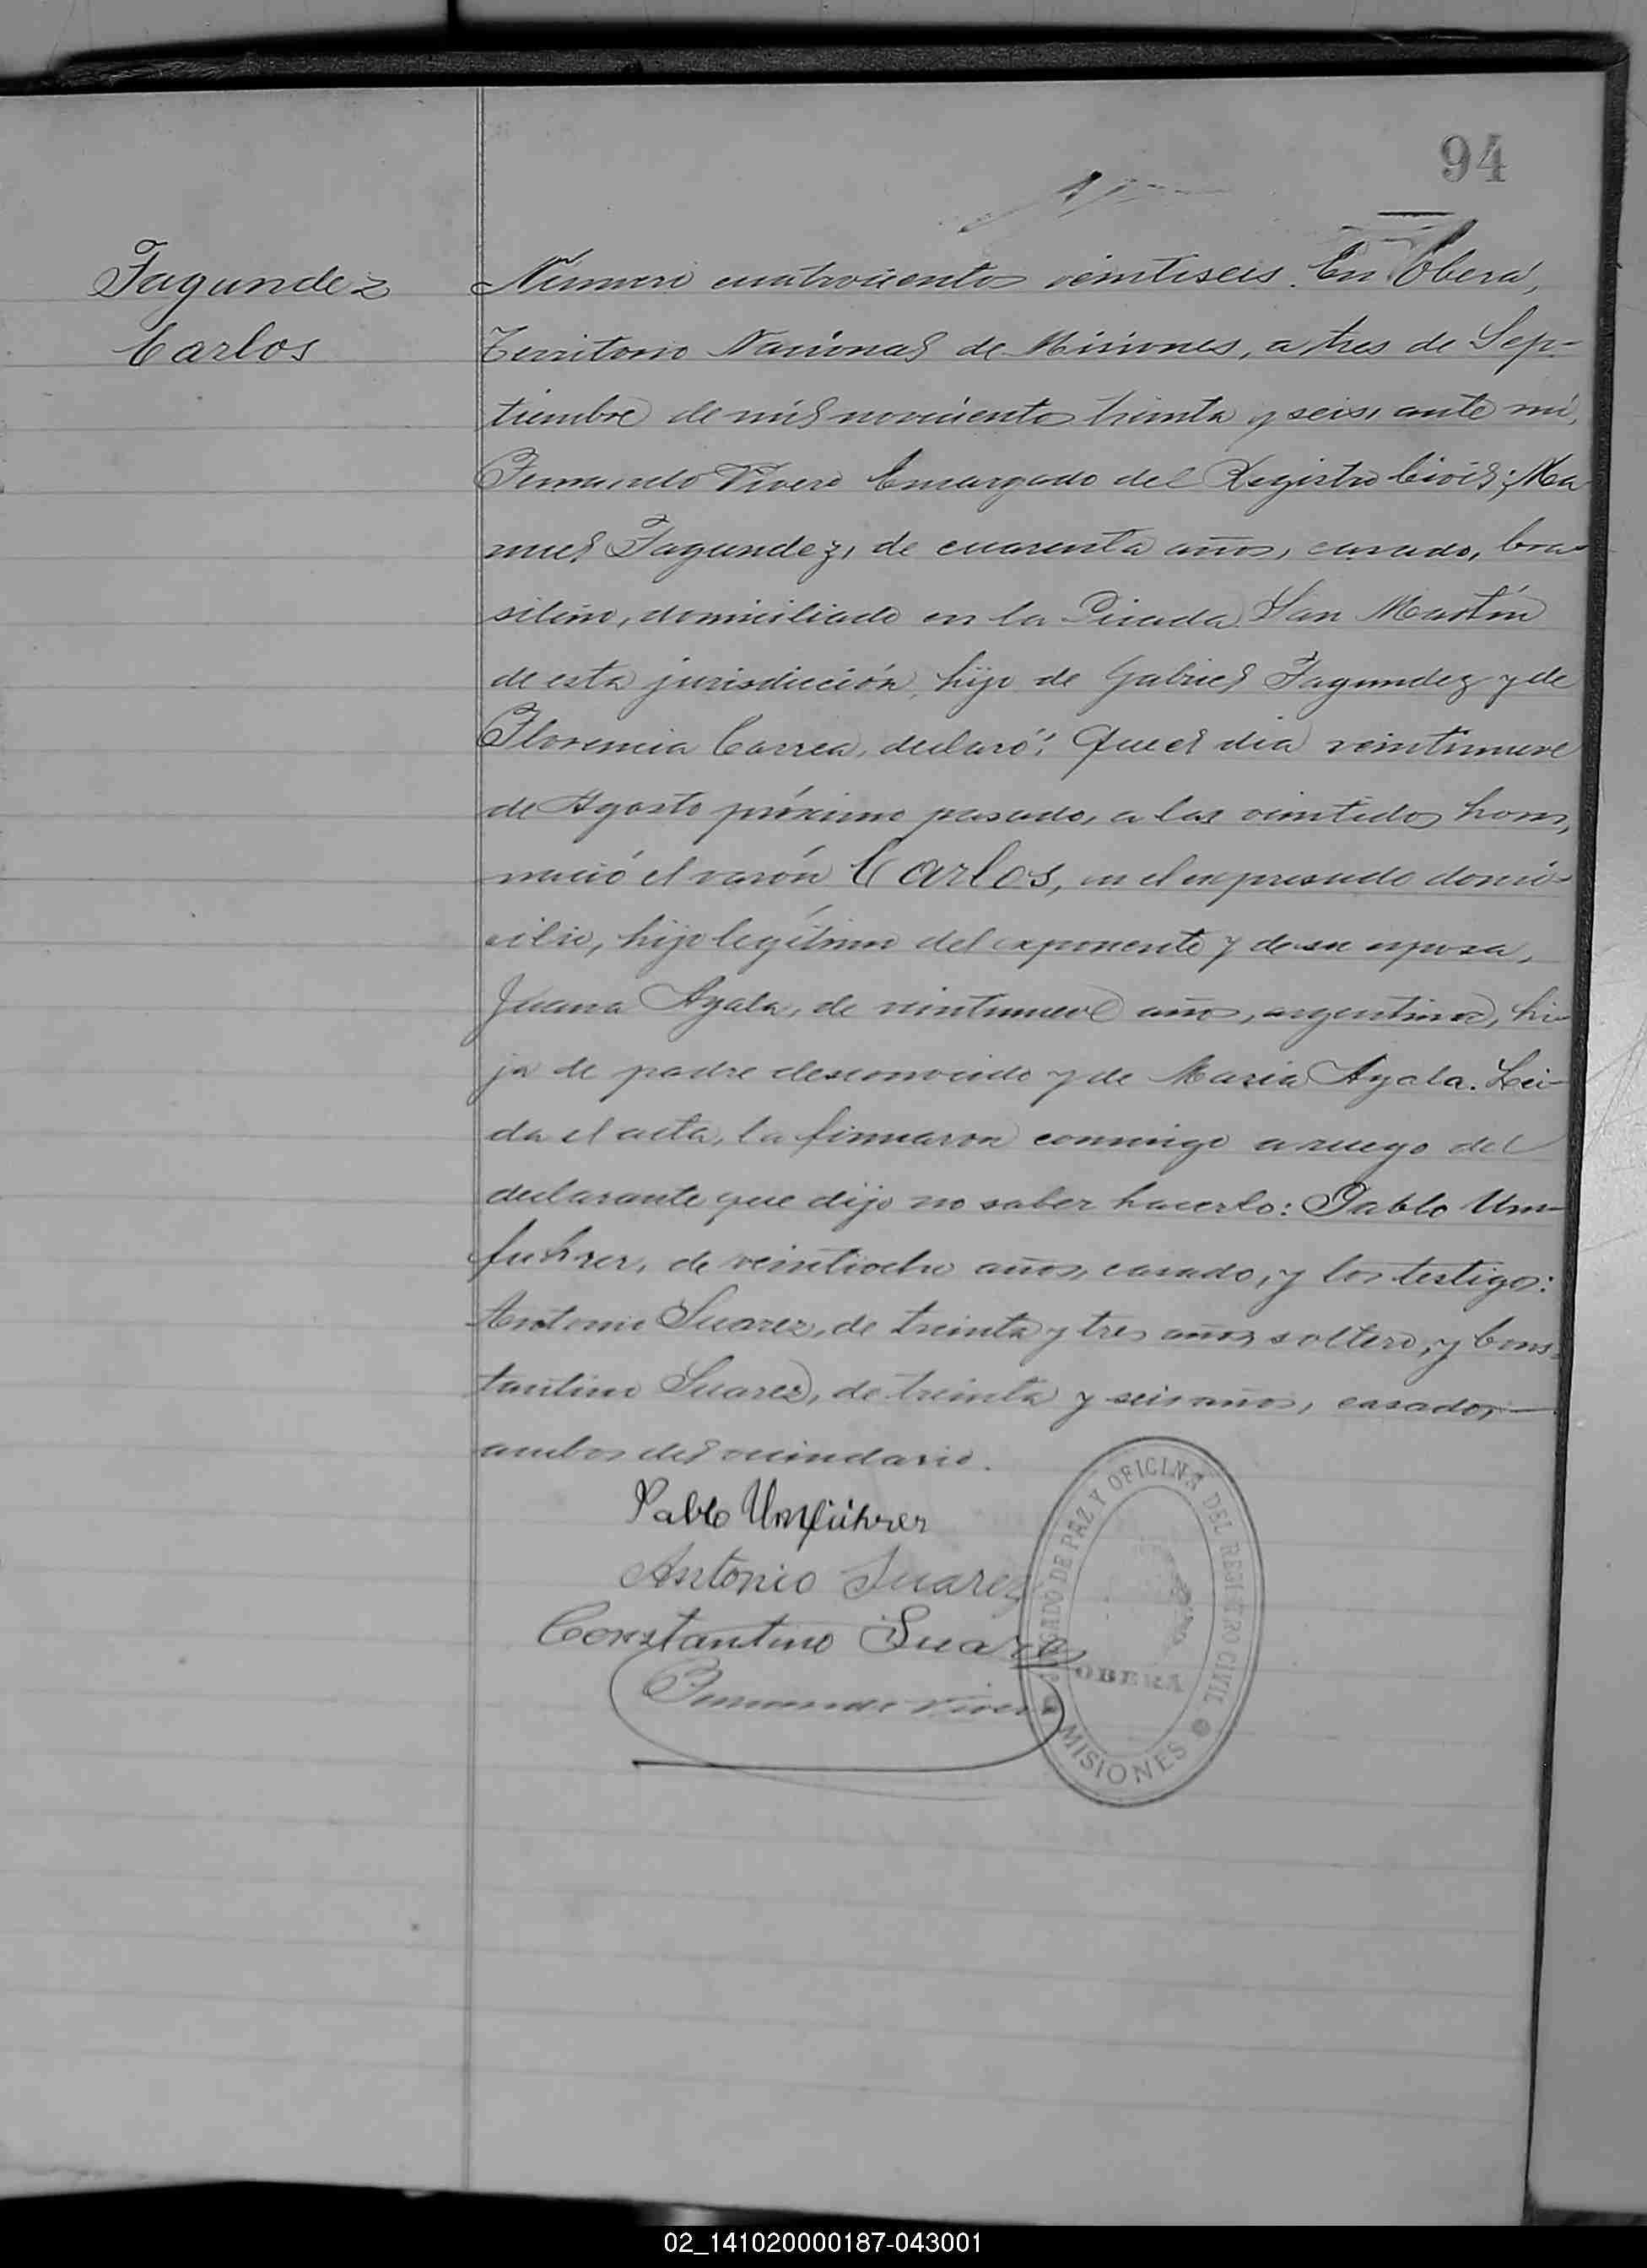 94
Fagundez
Carlos
Número cuatrocientos veintiseis. En Oberá,
Territorio Nacional de Misiones, a tres de Sep-
tiembre de mil novecientos treinta y seis, ante mí,
Fernando Vivero Encargado del Registro Civil; Ma-
nuel Fagundez, de cuarenta años, casado, bra-
sileño, domiciliado en la Picada San Martín
de esta jurisdicción, hijo de Gabriel Fagundez y de
Florencia Correa, declaró: Que el día veintinueve
de Agosto próximo pasado, a las veintidos horas,
nació el varón Carlos, en el expresado domi-
cilio, hijo legítimo del exponente y de su esposa,
Juana Ayala, de veintinueve años, argentina, hi-
ja de padre desconocido y de María Ayala. Leí-
da el acta, la firmaron conmigo a ruego del
declarante que dijo no saber hacerlo: Pablo Um-
fuhrer, de veintiocho años, casado, y los testigos:
Antonio Suarez, de treinta y tres años, soltero, y Cons-
tantino Suarez, de treinta y seis años, casado,—
ambos del vecindario.
Pablo Umführer
Antonio Suarez
Constantino Suarez
Fernando Vivero
JUZGADO DE PAZ Y OFICINA DEL REGISTRO CIVIL
OBERÁ
MISIONES
02_141020000187-043001